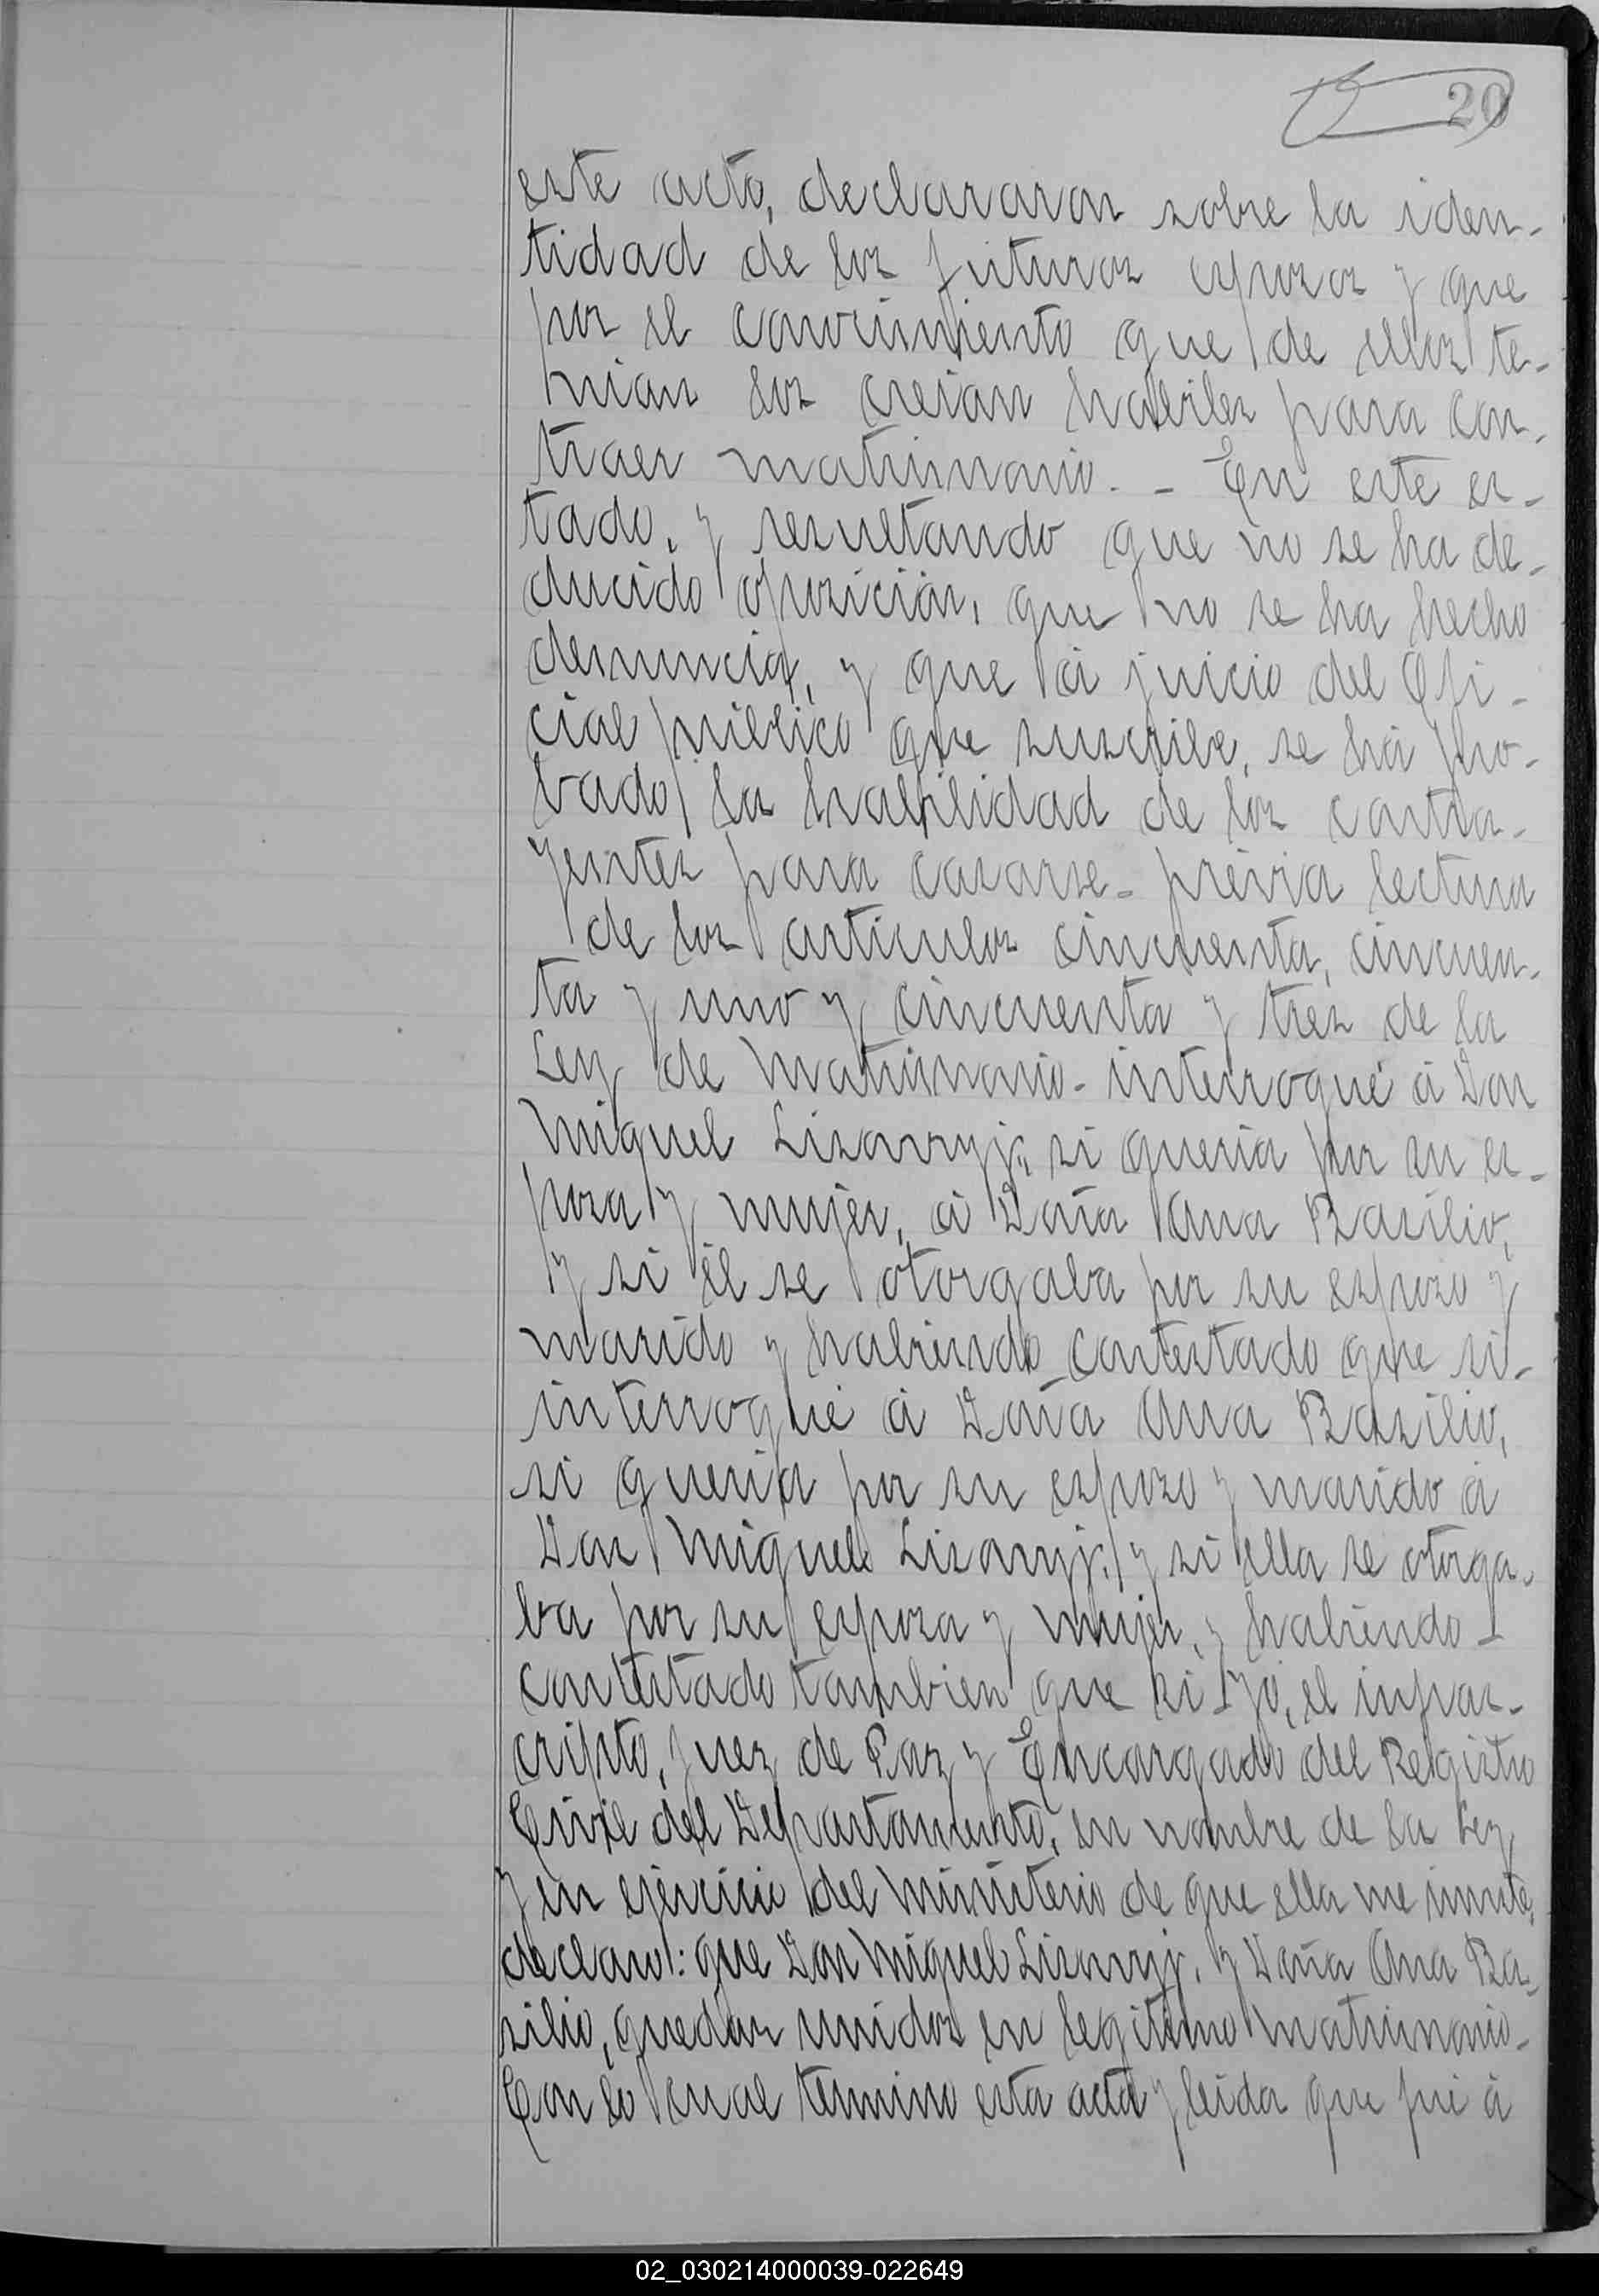 20
este acto, declararon sobre la iden-
tidad de los futuros esposos y que
por el conocimiento que de ellos te-
nian los creian habiles para con-
traer matrimonio. - En este es-
tado, y resultando que no se ha de-
ducido oposición, que no se ha hecho
denuncia, y que á juicio del Ofi-
cial público que suscribe, se há pro-
bado la habilidad de los contra-
yentes para casarse - prévia lectura
de los articulos cincuenta, cincuen-
ta y uno y cincuenta y tres de la
Ley de Matrimonio - interrogué á Don
Miguel si queria por su es-
posa y mujer, á Doña Ana Basilio,
y si él se otorgaba por su esposo y
marido y habiendo contestado que si-
interrogué á Doña Ana Basilio,
si queria por su esposo y marido á
Don Miguel y si ella se otorga-
ba por su esposa y mujer, y habiendo -
contestado tambien que si - yo, el infras-
cripto, Juez de Paz y Encargado del Registro
Civil del Departamento, en nombre de la Ley,
y en ejercicio del Ministerio de que ella me inviste,
declaro: que Don Miguel y Doña Ana Ba-
silio, quedan unidos en legitimo matrimonio-
Con lo cual termino esta acta y leida que fué á
02_030214000039-022649